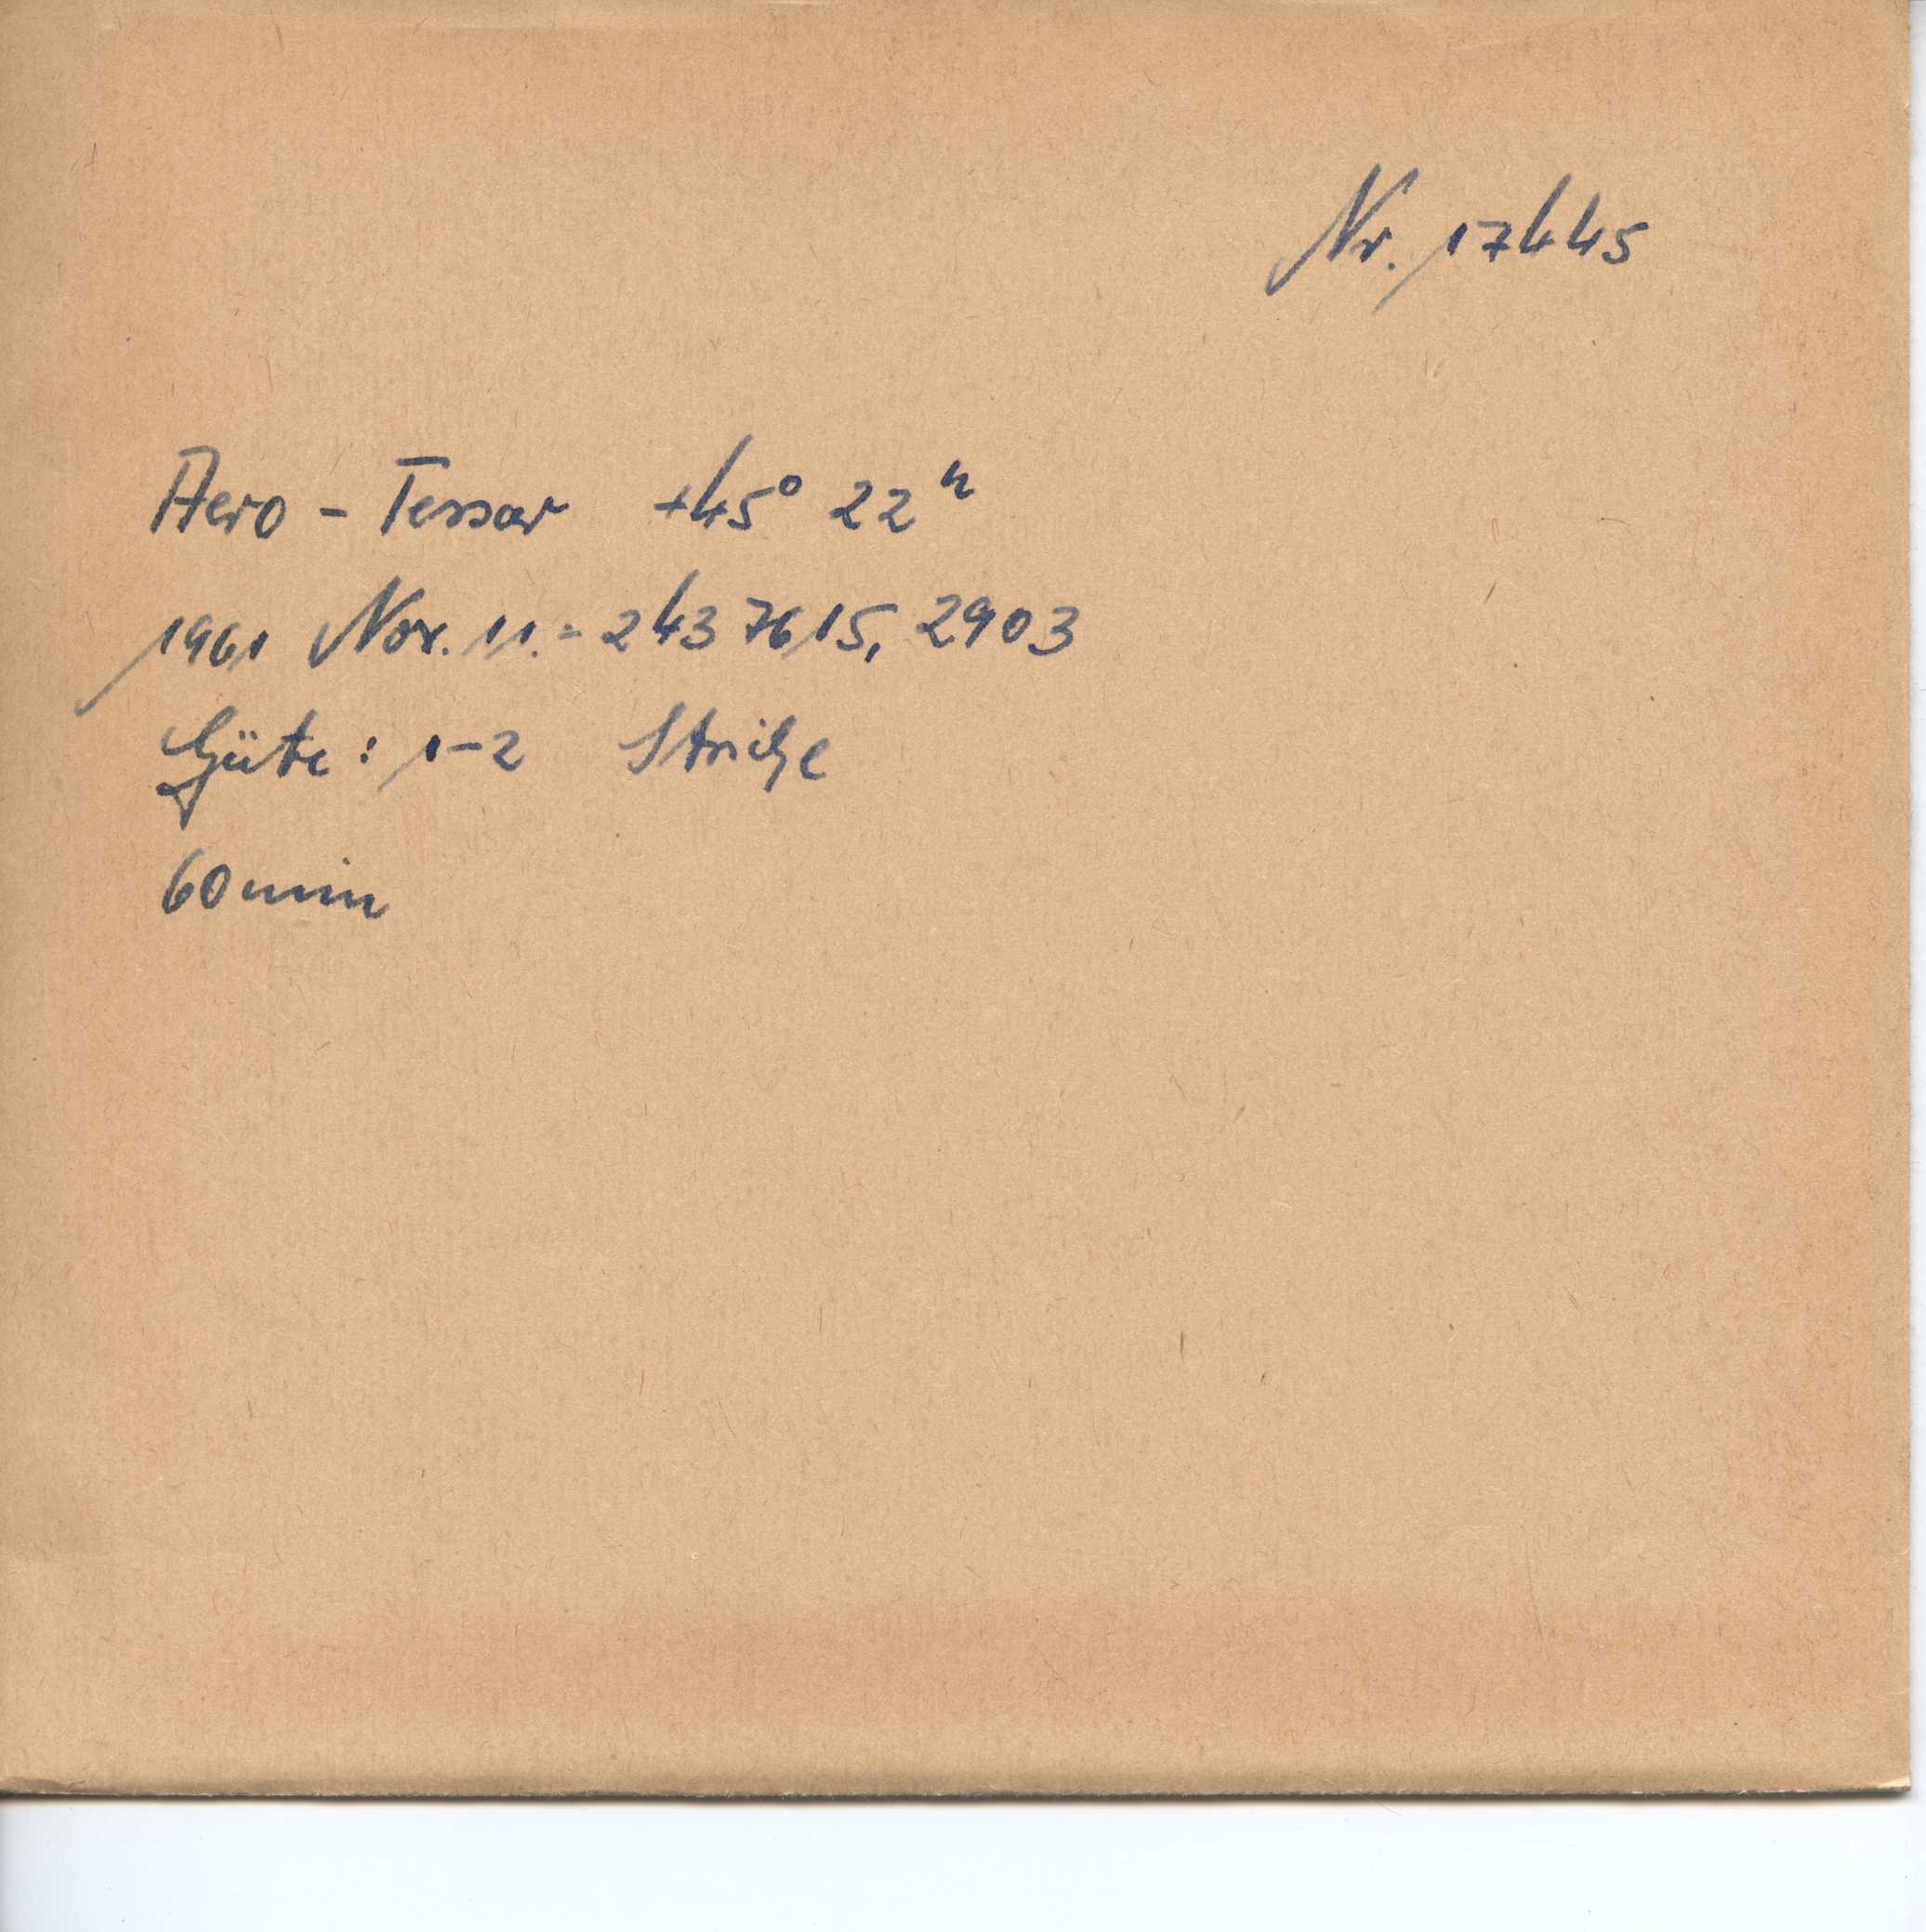 Nr. 17445
Aero - Tessar +45° 22ʰ
1961 Nov. 11. = 243 7615, 2903
Güte: 1-2 Striche
60 min